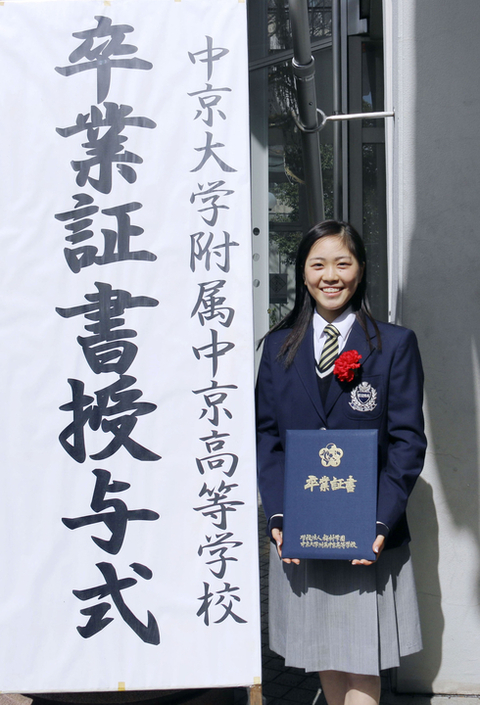 中京大学附属中京高等学校
卒業証書授与式
卒業証書
学校法人 梅村学園
中京大学附属中京高等学校